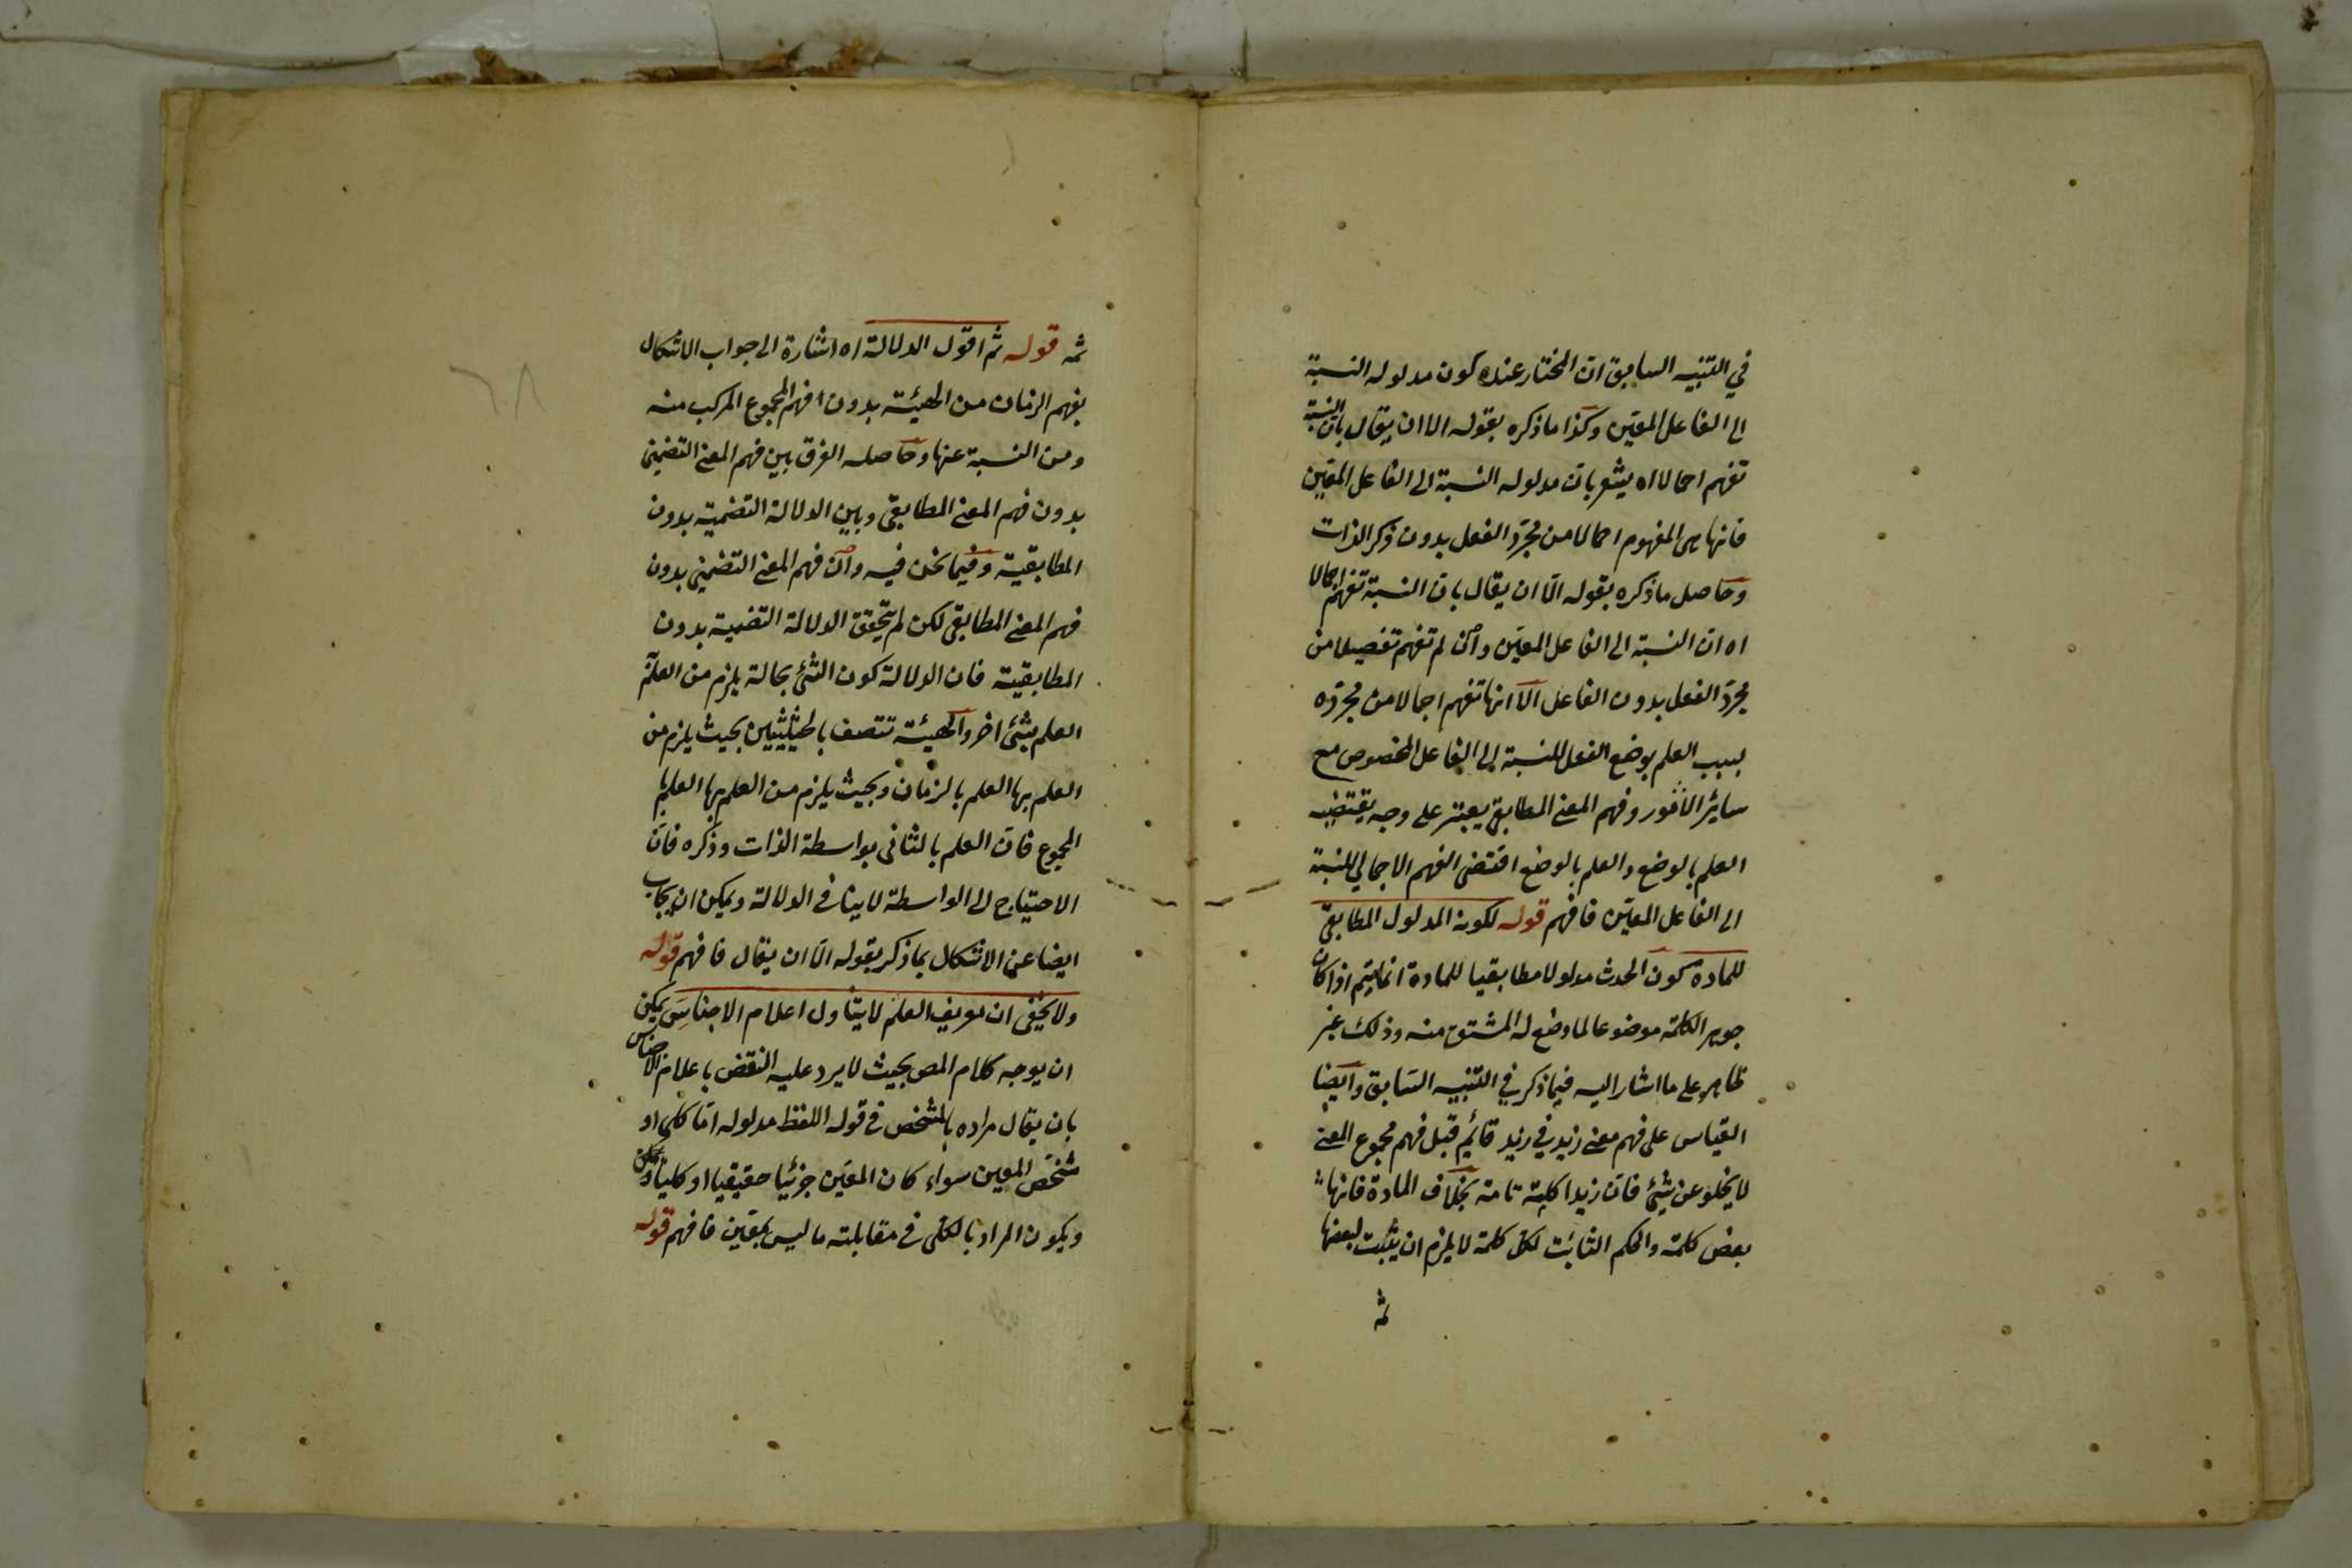 في التنبيه السابق ان المختار عنده كون مدلوله النسبة
الى الفاعل المعيّن وكذا ما ذكره بقوله الا ان يقال بان النسبة
تفهم اجمالا اه يشعر بان مدلوله النسبة الى الفاعل المعيّن
فانها هى المفهوم اجمالا من مجرّد الفعل بدون ذكر الذات
وحاصل ما ذكره بقوله الّا ان يقال بان النسبة تفهم اجمالا
اه ان النسبة الى الفاعل المعيّن وان لم تفهم تفصيلا من
مجرّد الفعل بدون الفاعل الّا انها تفهم اجمالا من مجرّده
بسبب العلم بوضع الفعل للنسبة الى الفاعل المخصوص مع
سائر الامور وفهم المعنى المطابقى يعتبر على وجه يقتضيه
العلم بالوضع والعلم بالوضع اقتضى الفهم الاجمالي للنسبة
الى الفاعل المعيّن فافهم قوله لكونه المدلول المطابقى
للمادة كون الحدث مدلولا مطابقيا للمادة انما يتم اذا كان
جوهر الكلمة موضوعا لما وضع له المشتق منه وذلك غير
ظاهر على ما اشار اليه فيما ذكر في التنبيه السّابق وايضا
القياس على فهم معنى زيد في زيد قائم قبل فهم مجموع المعنى
لا يخلو عن شئ فان زيدا كلمة تامة بخلاف المادة فانها
بعض كلمة والحكم الثابت لكل كلمة لا يلزم ان يثبت لبعضها
ثمه
ثمه قوله ثم اقول الدلالة اه اشارة الى جواب الاشكال
بفهم الزمان من الهيئة بدون فهم المجموع المركب منه
ومن النسبة عنها وحاصله الفرق بين فهم المعنى التضمنى
بدون فهم المعنى المطابقى وبين الدلالة التضمنية بدون
المطابقية وفيما نحن فيه وان فهم المعنى التضمنى بدون
فهم المعنى المطابقى لكن لم يتحقق الدلالة التضمنية بدون
المطابقية فان الدلالة كون الشئ بحالة يلزم من العلم
العلم بشئ اخر والهيئة تتصف بالحيثيتين بحيث يلزم من
العلم بها العلم بالزمان وبحيث يلزم من العلم بها العلم
المجموع فان العلم بالثانى بواسطة الذات وذكره فان
الاحتياج الى الواسطة لا ينافى الدلالة ويمكن ان يجاب
ايضا عن الاشكال بما ذكر بقوله الّا ان يقال فافهم قوله
ولا يخفى ان تعريف العلم لا يتناول اعلام الاجناس يمكن
ان يوجه كلام المص بحيث لا يرد عليه النقض باعلام الاجناس
بان يقال مراده بالمشخص فى قوله اللفظ مدلوله امّا كلى او
مشخص المعين سواء كان المعين جزئيا حقيقيا او كليا
ويكون المراد بالكلى فى مقابلته ما ليس بمعين فافهم قوله
٦٨